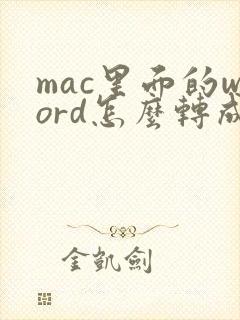 mac里面的w
ord怎麼轉成
金凱劍